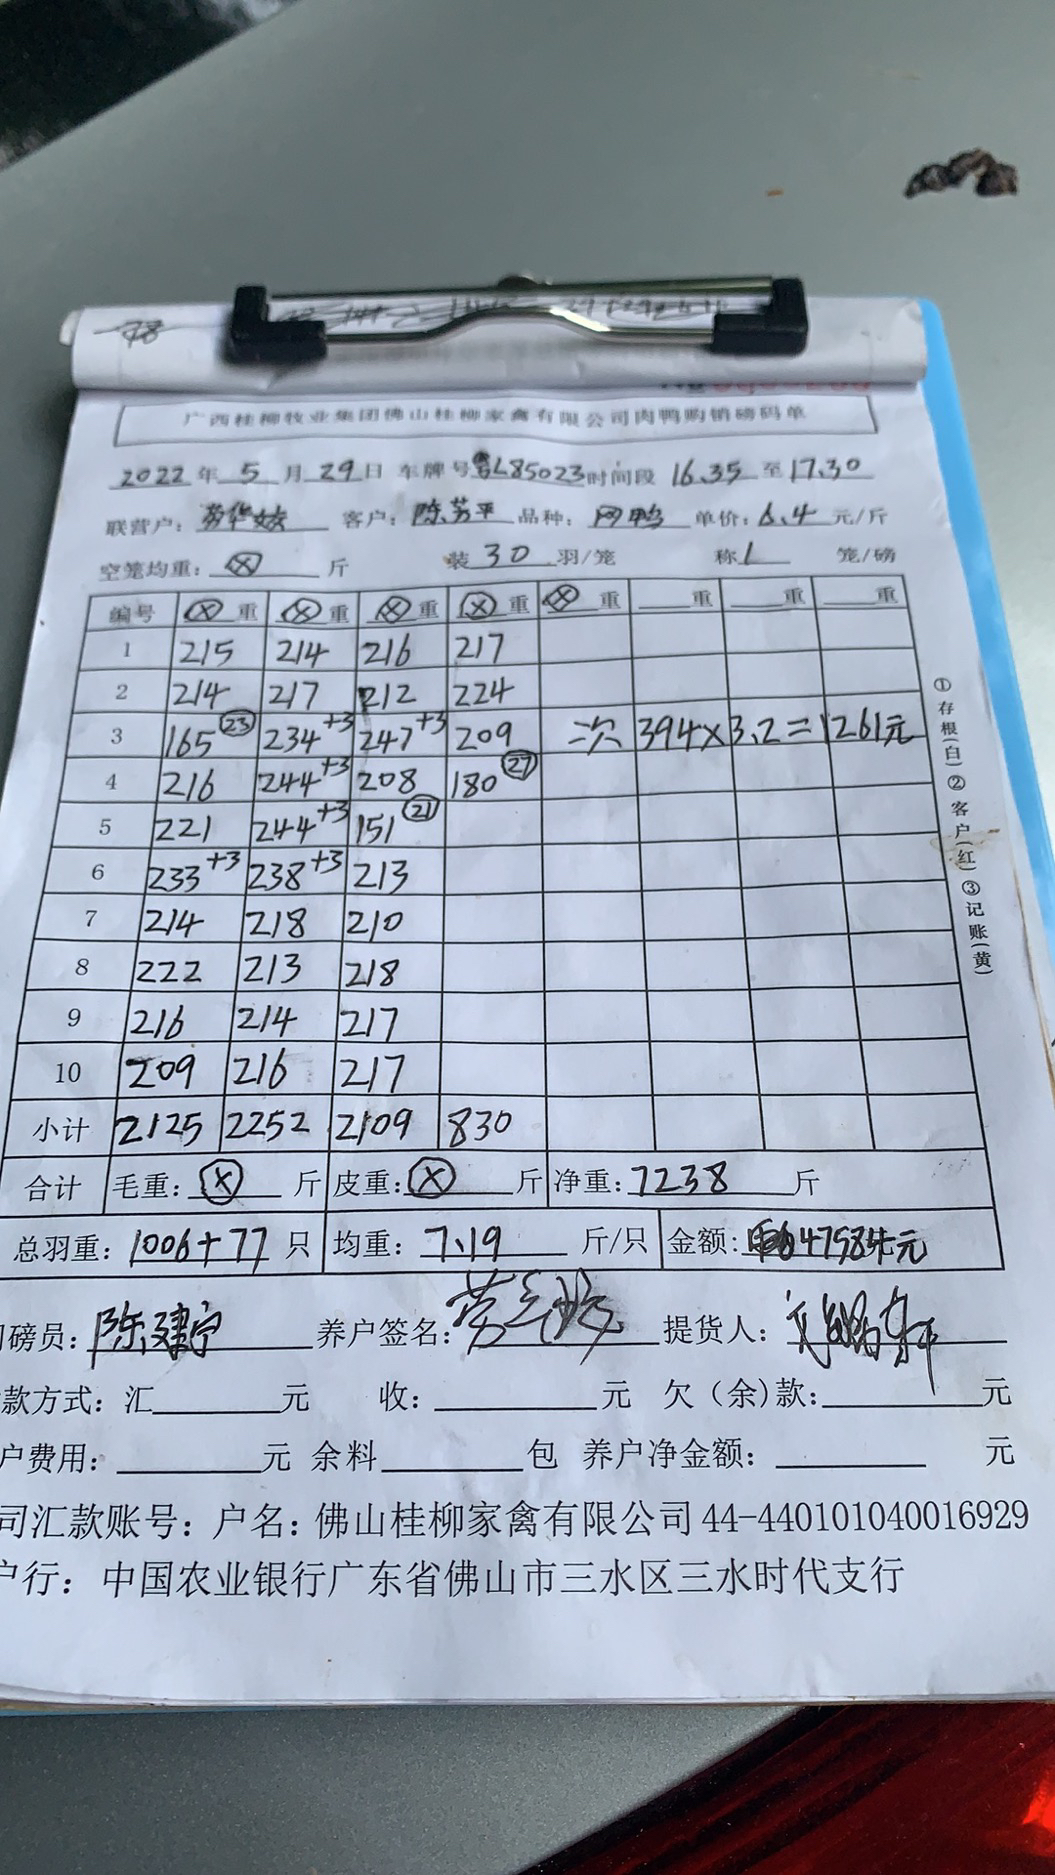 78
广西桂柳牧业集团佛山桂柳家禽有限公司肉鸭购销磅码单
2022 年 5 月 29 日 车牌号 L85023 时间段 16.35 至 17.30
联营户： 客户：陈芳平 品种：冈鸭 单价：6.4 元/斤
空笼均重：ⓧ 斤 装 30 羽/笼 称 1 笼/磅
编号 ⓧ 重 ⓧ 重 ⓧ 重 ⓧ 重 ⓧ 重 重 重 重
1 215 214 216 217
2 214 217 212 224
3 165 ㉓ 234 +3 247 +3 209 二次 394×3.2=1261元
4 216 244 +3 208 180 ㉗
5 221 244 +3 151 ㉑
6 233 +3 238 +3 213
7 214 218 210
8 222 213 218
9 216 214 217
10 209 216 217
小计 2125 2252 2109 830
合计 毛重：ⓧ 斤 皮重：ⓧ 斤 净重：7238 斤
总羽重：1006+77 只 均重：7.19 斤/只 金额：47584元
磅员：陈建宁 养户签名： 提货人：
款方式：汇 元 收： 元 欠（余)款： 元
户费用： 元 余料 包 养户净金额： 元
司汇款账号：户名：佛山桂柳家禽有限公司 44-440101040016929
户行：中国农业银行广东省佛山市三水区三水时代支行
①存根(白)②客户(红)③记账(黄)